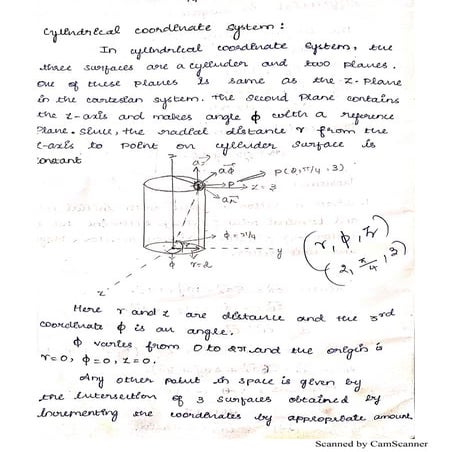 Cylindrical coordinate system:
In cylindrical coordinate system, the
three surfaces are a cylinder and two planes.
One of these planes is same as the z-plane
in the cartesian system. The second plane contains
the z-axis and makes angle ϕ with a reference
plane. Since, the radial distance r from the
z-axis to point on cylinder surface is
constant
z
a
aϕ
P(2, π/4, 3)
P
z = 3
ar
ϕ = π/4
y
ϕ
r=2
x
(r, ϕ, z)
(2, π/4, 3)
Here r and z are distance and the 3rd
coordinate ϕ is an angle.
ϕ varies from 0 to 2π. and the origin is
r=0, ϕ=0, z=0.
Any other point in space is given by
the intersection of 3 surfaces obtained by
incrementing the coordinates by appropriate amount
Scanned by CamScanner